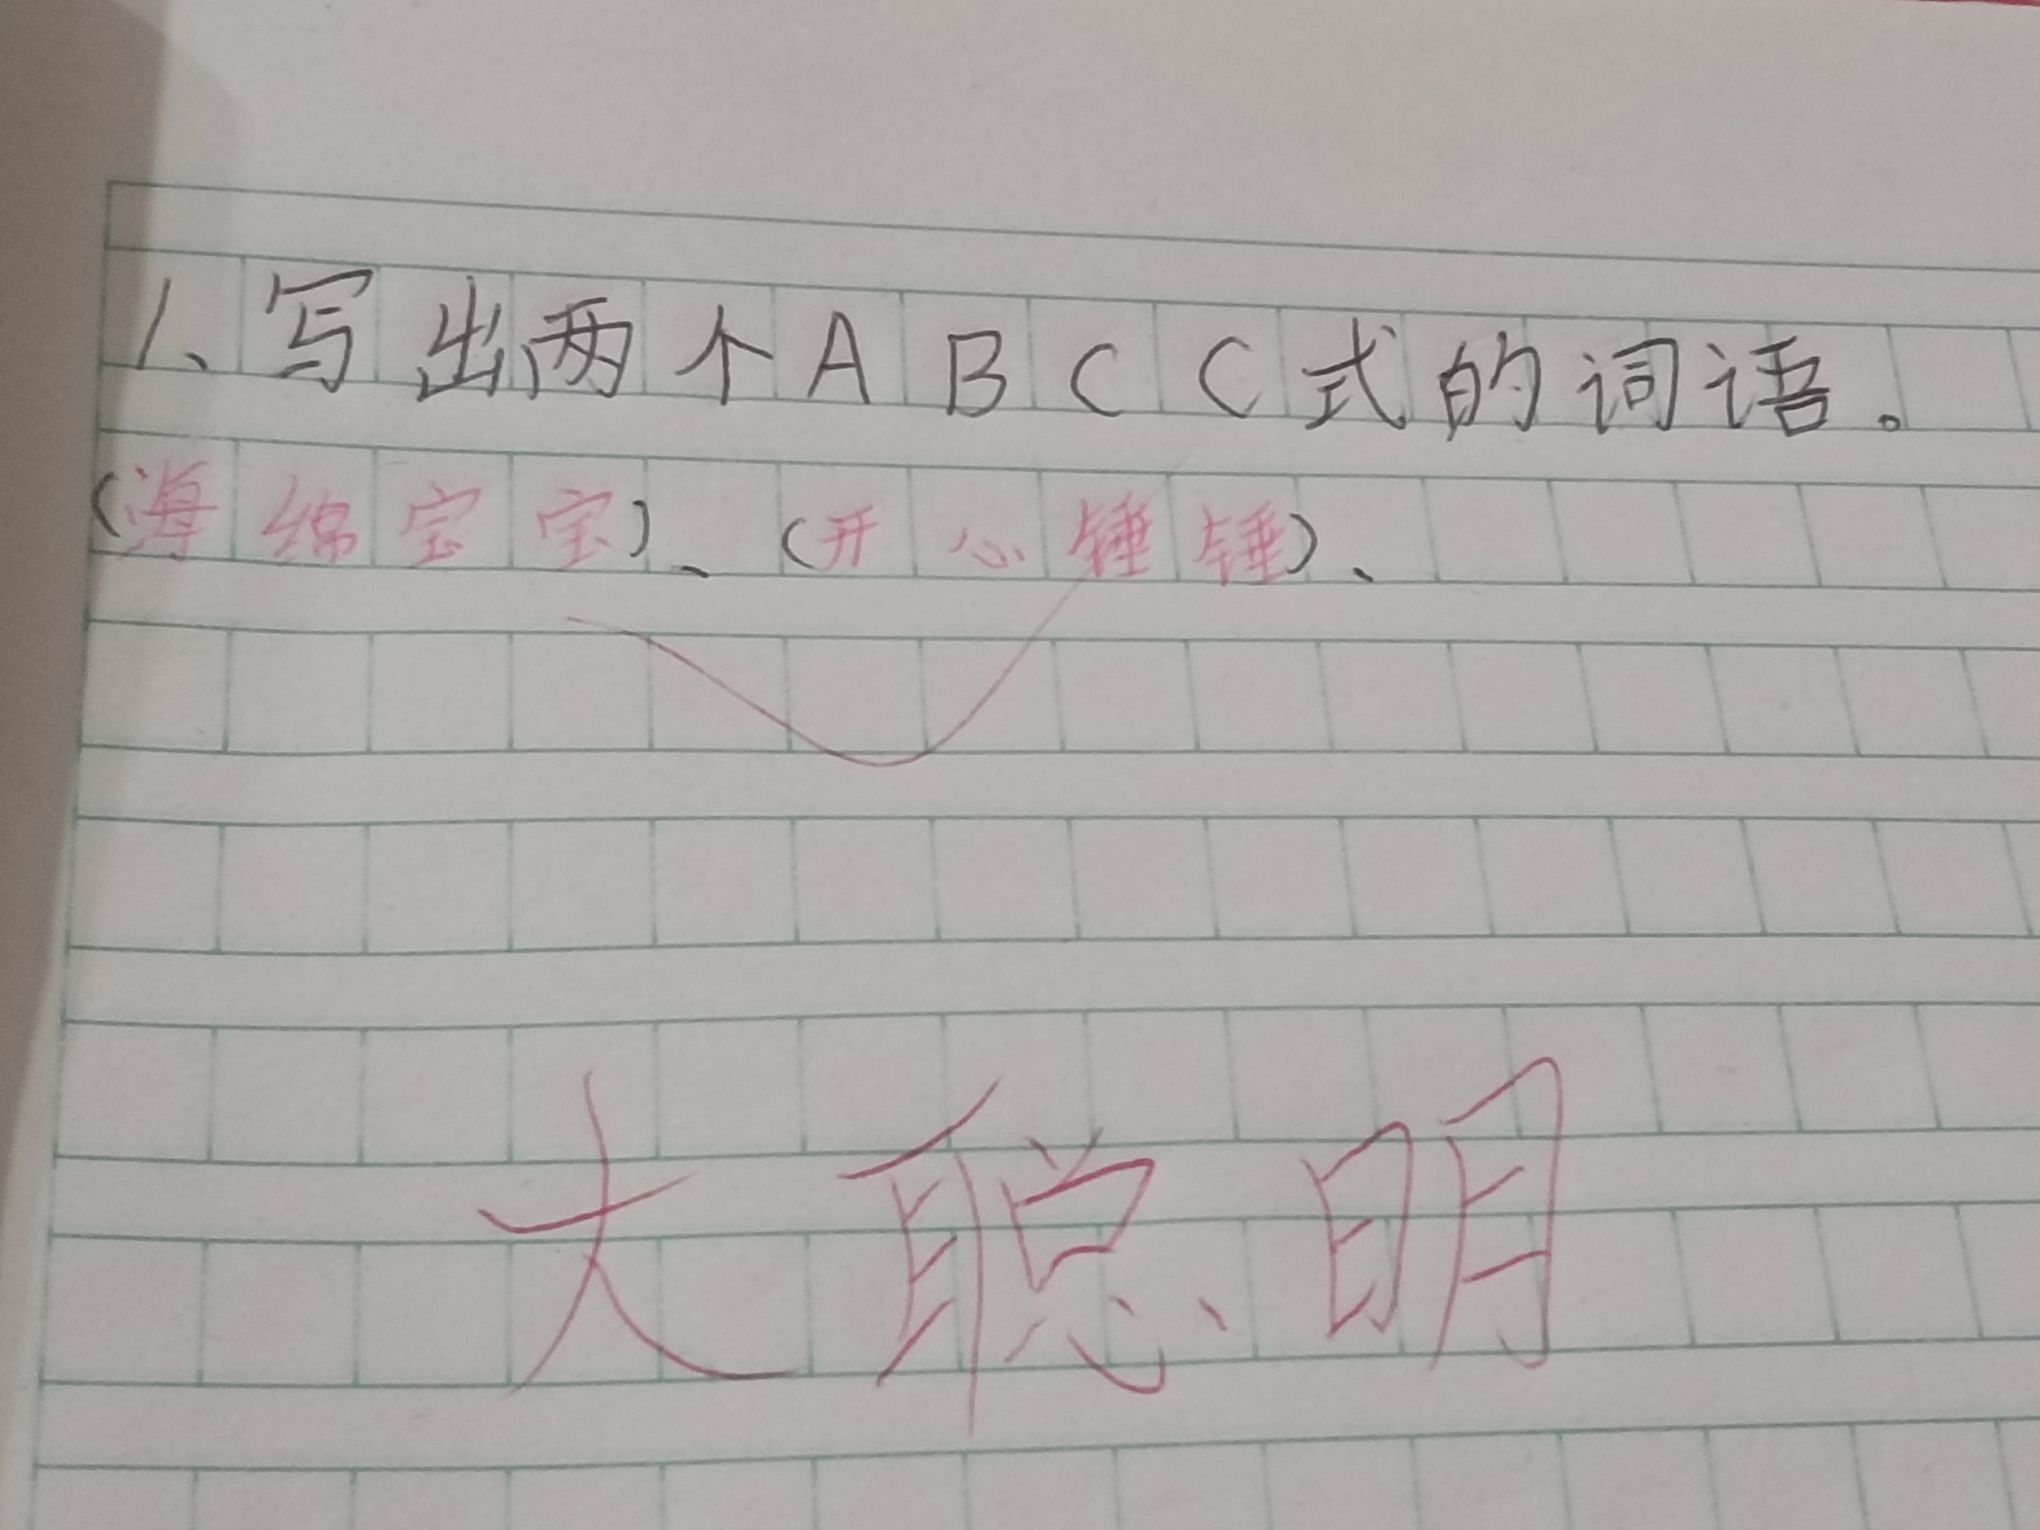 1、写出两个ABCC式的词语。
(海绵宝宝)、(开心锤锤)、
大聪明